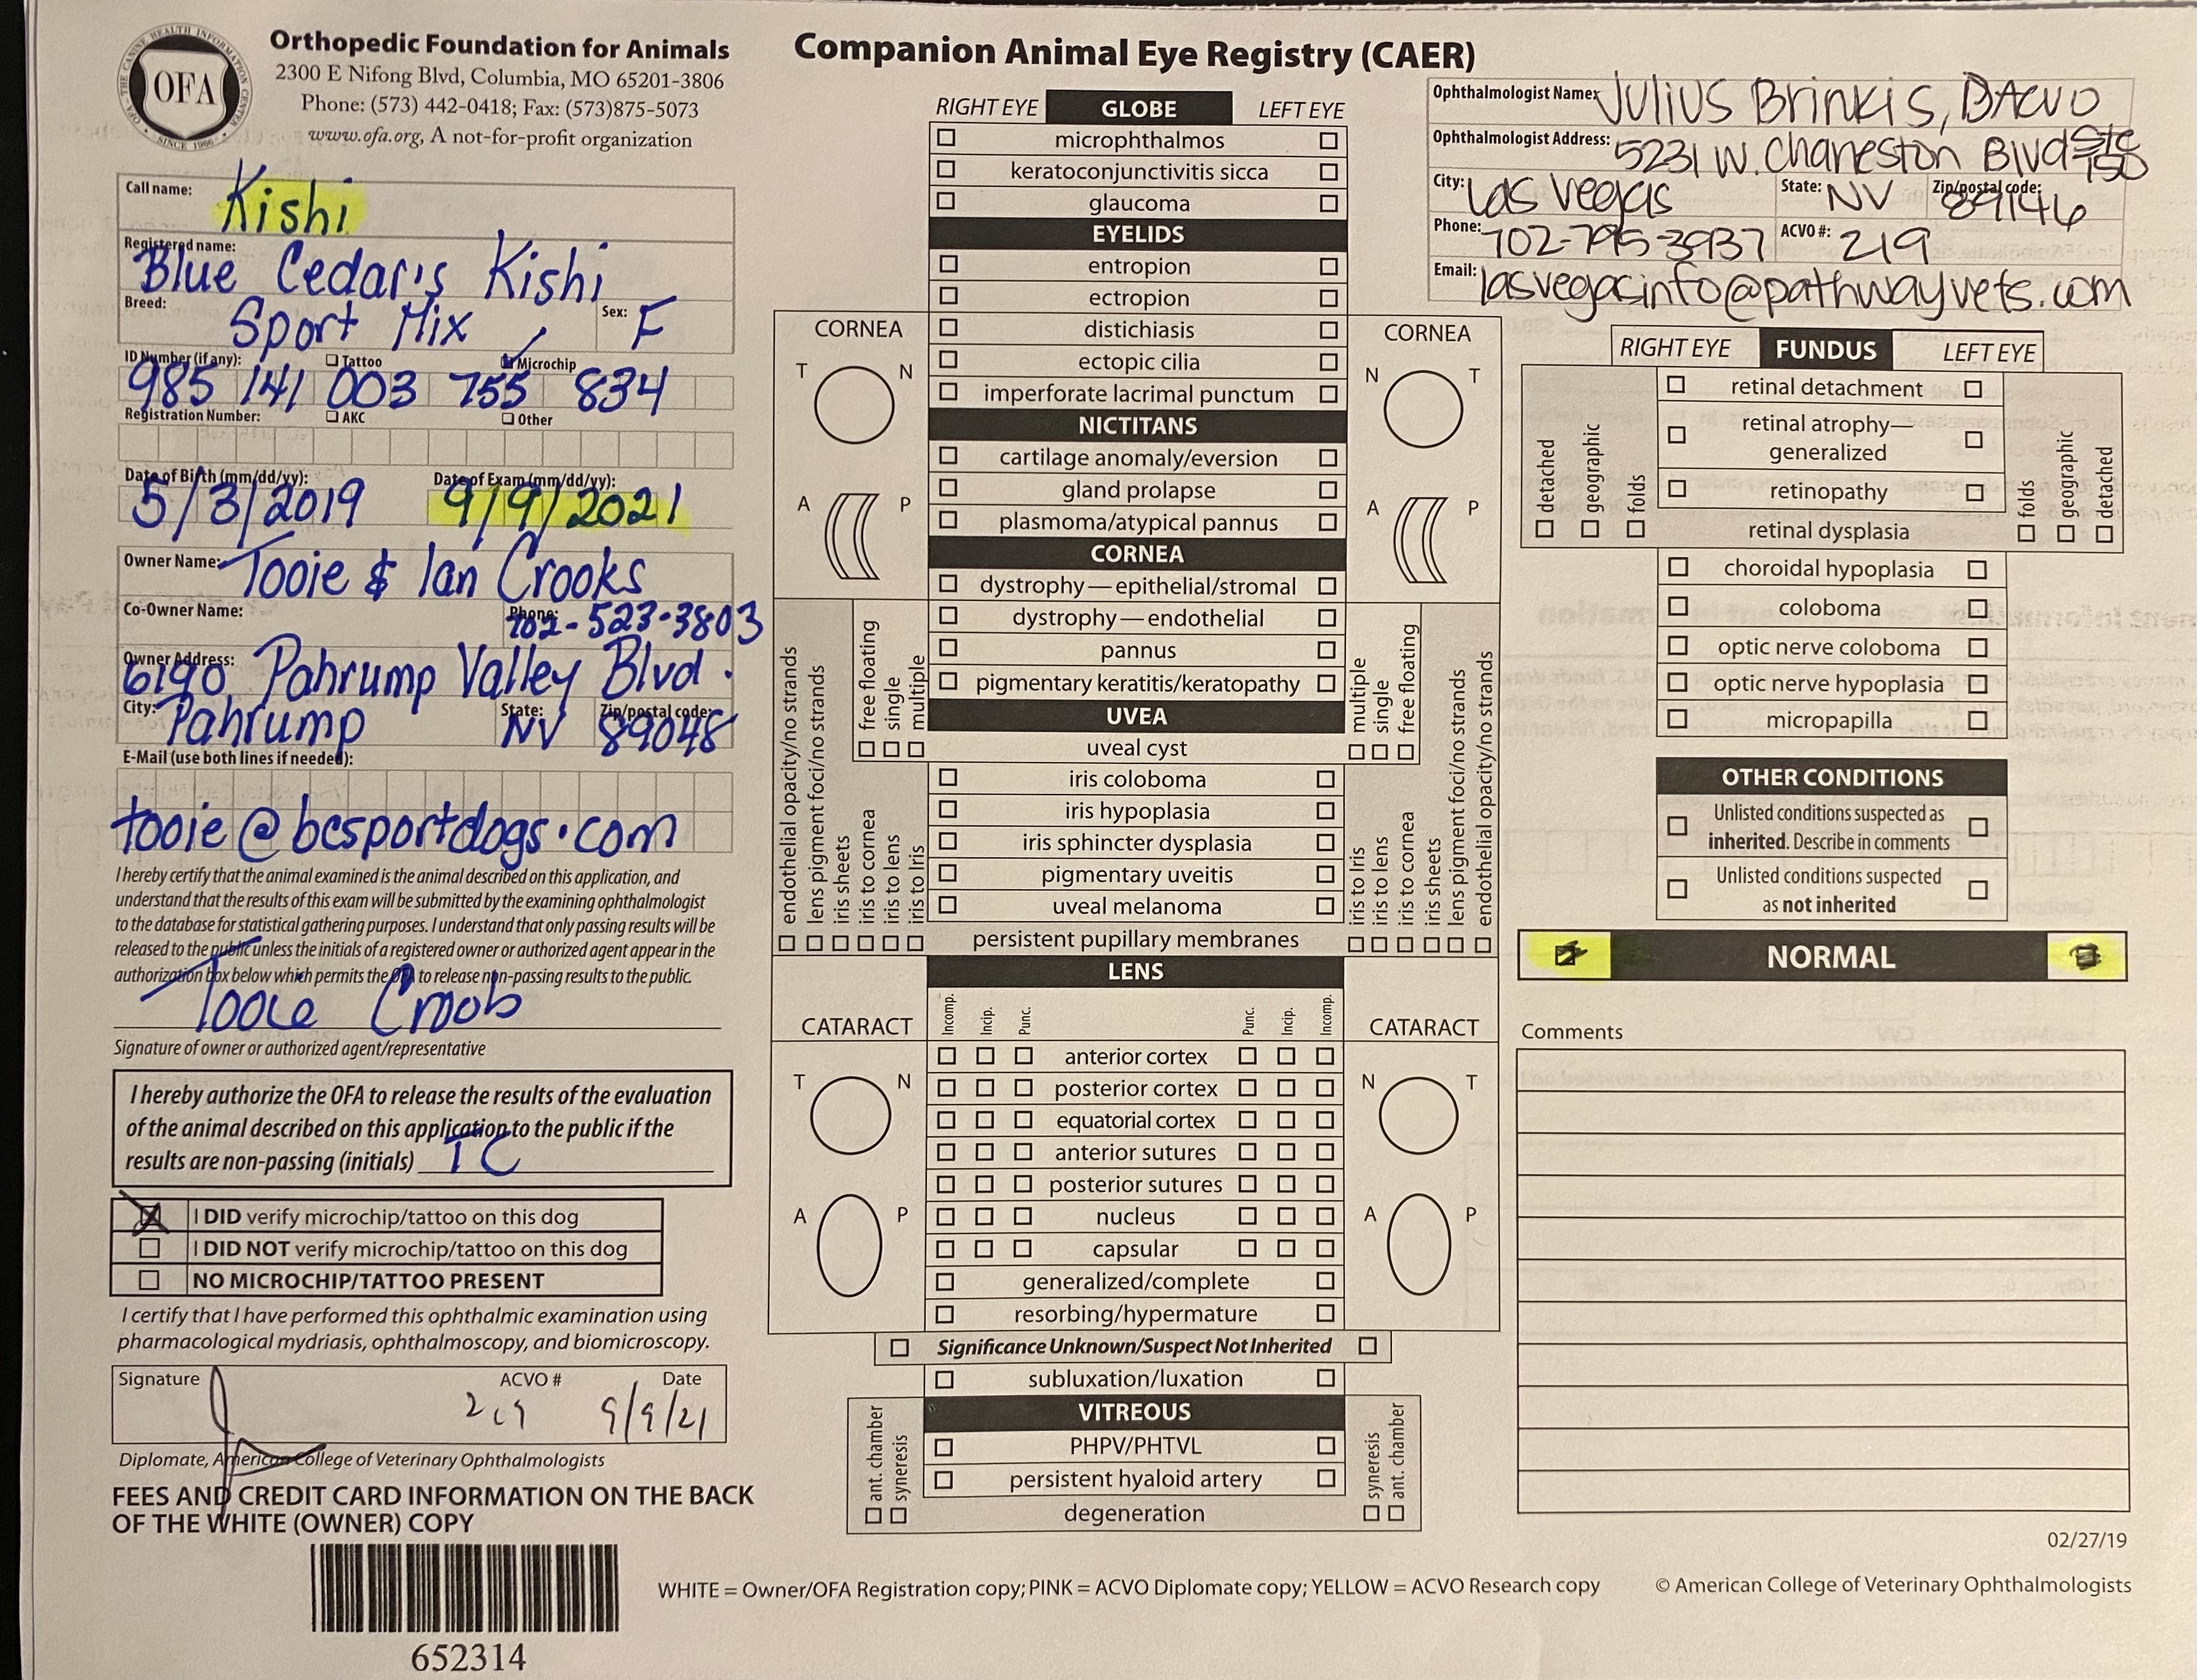 Orthopedic Foundation for Animals
2300 E Nifong Blvd, Columbia, MO 65201-3806
Phone: (573) 442-0418; Fax: (573)875-5073
www.ofa.org, A not-for-profit organization
OFA
SINCE 1966
Call name: Kishi
Registered name: Blue Cedar's Kishi
Breed: Sport Mix Sex: F
ID Number (if any): Tattoo Microchip
985 141 003 755 834
Registration Number: AKC Other
Date of Birth (mm/dd/yy): 5/3/2019 Date of Exam (mm/dd/yy): 9/9/2021
Owner Name: Tooie & Ian Crooks
Co-Owner Name: Phone: 702-523-3803
Owner Address: 6190 Pahrump Valley Blvd.
City: Pahrump State: NV Zip/postal code: 89048
E-Mail (use both lines if needed):
tooie@bcsportdogs.com
I hereby certify that the animal examined is the animal described on this application, and
understand that the results of this exam will be submitted by the examining ophthalmologist
to the database for statistical gathering purposes. I understand that only passing results will be
released to the public unless the initials of a registered owner or authorized agent appear in the
authorization box below which permits the OFA to release non-passing results to the public.
Tooie Crooks
Signature of owner or authorized agent/representative
I hereby authorize the OFA to release the results of the evaluation
of the animal described on this application to the public if the
results are non-passing (initials) TC
I DID verify microchip/tattoo on this dog
I DID NOT verify microchip/tattoo on this dog
NO MICROCHIP/TATTOO PRESENT
I certify that I have performed this ophthalmic examination using
pharmacological mydriasis, ophthalmoscopy, and biomicroscopy.
Signature ACVO # Date
219 9/9/21
Diplomate, American College of Veterinary Ophthalmologists
FEES AND CREDIT CARD INFORMATION ON THE BACK
OF THE WHITE (OWNER) COPY
652314
Companion Animal Eye Registry (CAER)
RIGHT EYE GLOBE LEFT EYE
microphthalmos
keratoconjunctivitis sicca
glaucoma
EYELIDS
entropion
ectropion
distichiasis
ectopic cilia
imperforate lacrimal punctum
NICTITANS
cartilage anomaly/eversion
gland prolapse
plasmoma/atypical pannus
CORNEA
dystrophy—epithelial/stromal
dystrophy—endothelial
pannus
pigmentary keratitis/keratopathy
UVEA
uveal cyst
iris coloboma
iris hypoplasia
iris sphincter dysplasia
pigmentary uveitis
uveal melanoma
persistent pupillary membranes
LENS
Incomp. Incip. Punc. Punc. Incip. Incomp.
anterior cortex
posterior cortex
equatorial cortex
anterior sutures
posterior sutures
nucleus
capsular
generalized/complete
resorbing/hypermature
Significance Unknown/Suspect Not Inherited
subluxation/luxation
VITREOUS
PHPV/PHTVL
persistent hyaloid artery
degeneration
CORNEA
T N
A P
free floating
single
multiple
endothelial opacity/no strands
lens pigment foci/no strands
iris sheets
iris to cornea
iris to lens
iris to Iris
CATARACT
T N
A P
ant. chamber
syneresis
CORNEA
N T
A P
multiple
single
free floating
iris to Iris
iris to lens
iris to cornea
iris sheets
lens pigment foci/no strands
endothelial opacity/no strands
CATARACT
N T
A P
syneresis
ant. chamber
Ophthalmologist Name: Julius Brinkis, DACVO
Ophthalmologist Address: 5231 W. Charleston Blvd Ste 150
City: Las Vegas State: NV Zip/postal code: 89146
Phone: 702-795-3937 ACVO #: 219
Email: lasvegasinfo@pathwayvets.com
RIGHT EYE FUNDUS LEFT EYE
retinal detachment
retinal atrophy—
generalized
retinopathy
retinal dysplasia
detached
geographic
folds
folds
geographic
detached
choroidal hypoplasia
coloboma
optic nerve coloboma
optic nerve hypoplasia
micropapilla
OTHER CONDITIONS
Unlisted conditions suspected as
inherited. Describe in comments
Unlisted conditions suspected
as not inherited
NORMAL
Comments
02/27/19
WHITE = Owner/OFA Registration copy; PINK = ACVO Diplomate copy; YELLOW = ACVO Research copy
© American College of Veterinary Ophthalmologists